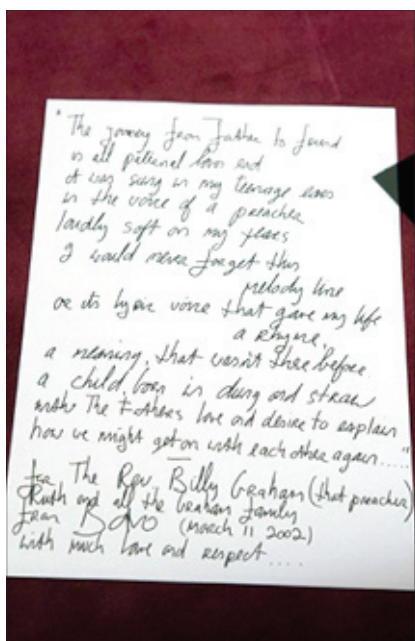 "The journey from Father to friend
is all paternal loves end
It was sung in my teenage ears
in the voice of a preacher
loudly soft on my tears
I would never forget this
melody line
or its lyric voice that gave my life
a Rhyme.
a meaning, that wasn't there before.
a child born in dung and straw
with the Father's love and desire to explain
how we might get on with each other again....."
for The Rev. Billy Graham (that preacher)
Ruth and all the Graham family
from BONO (March 11 2002)
with much love and respect....